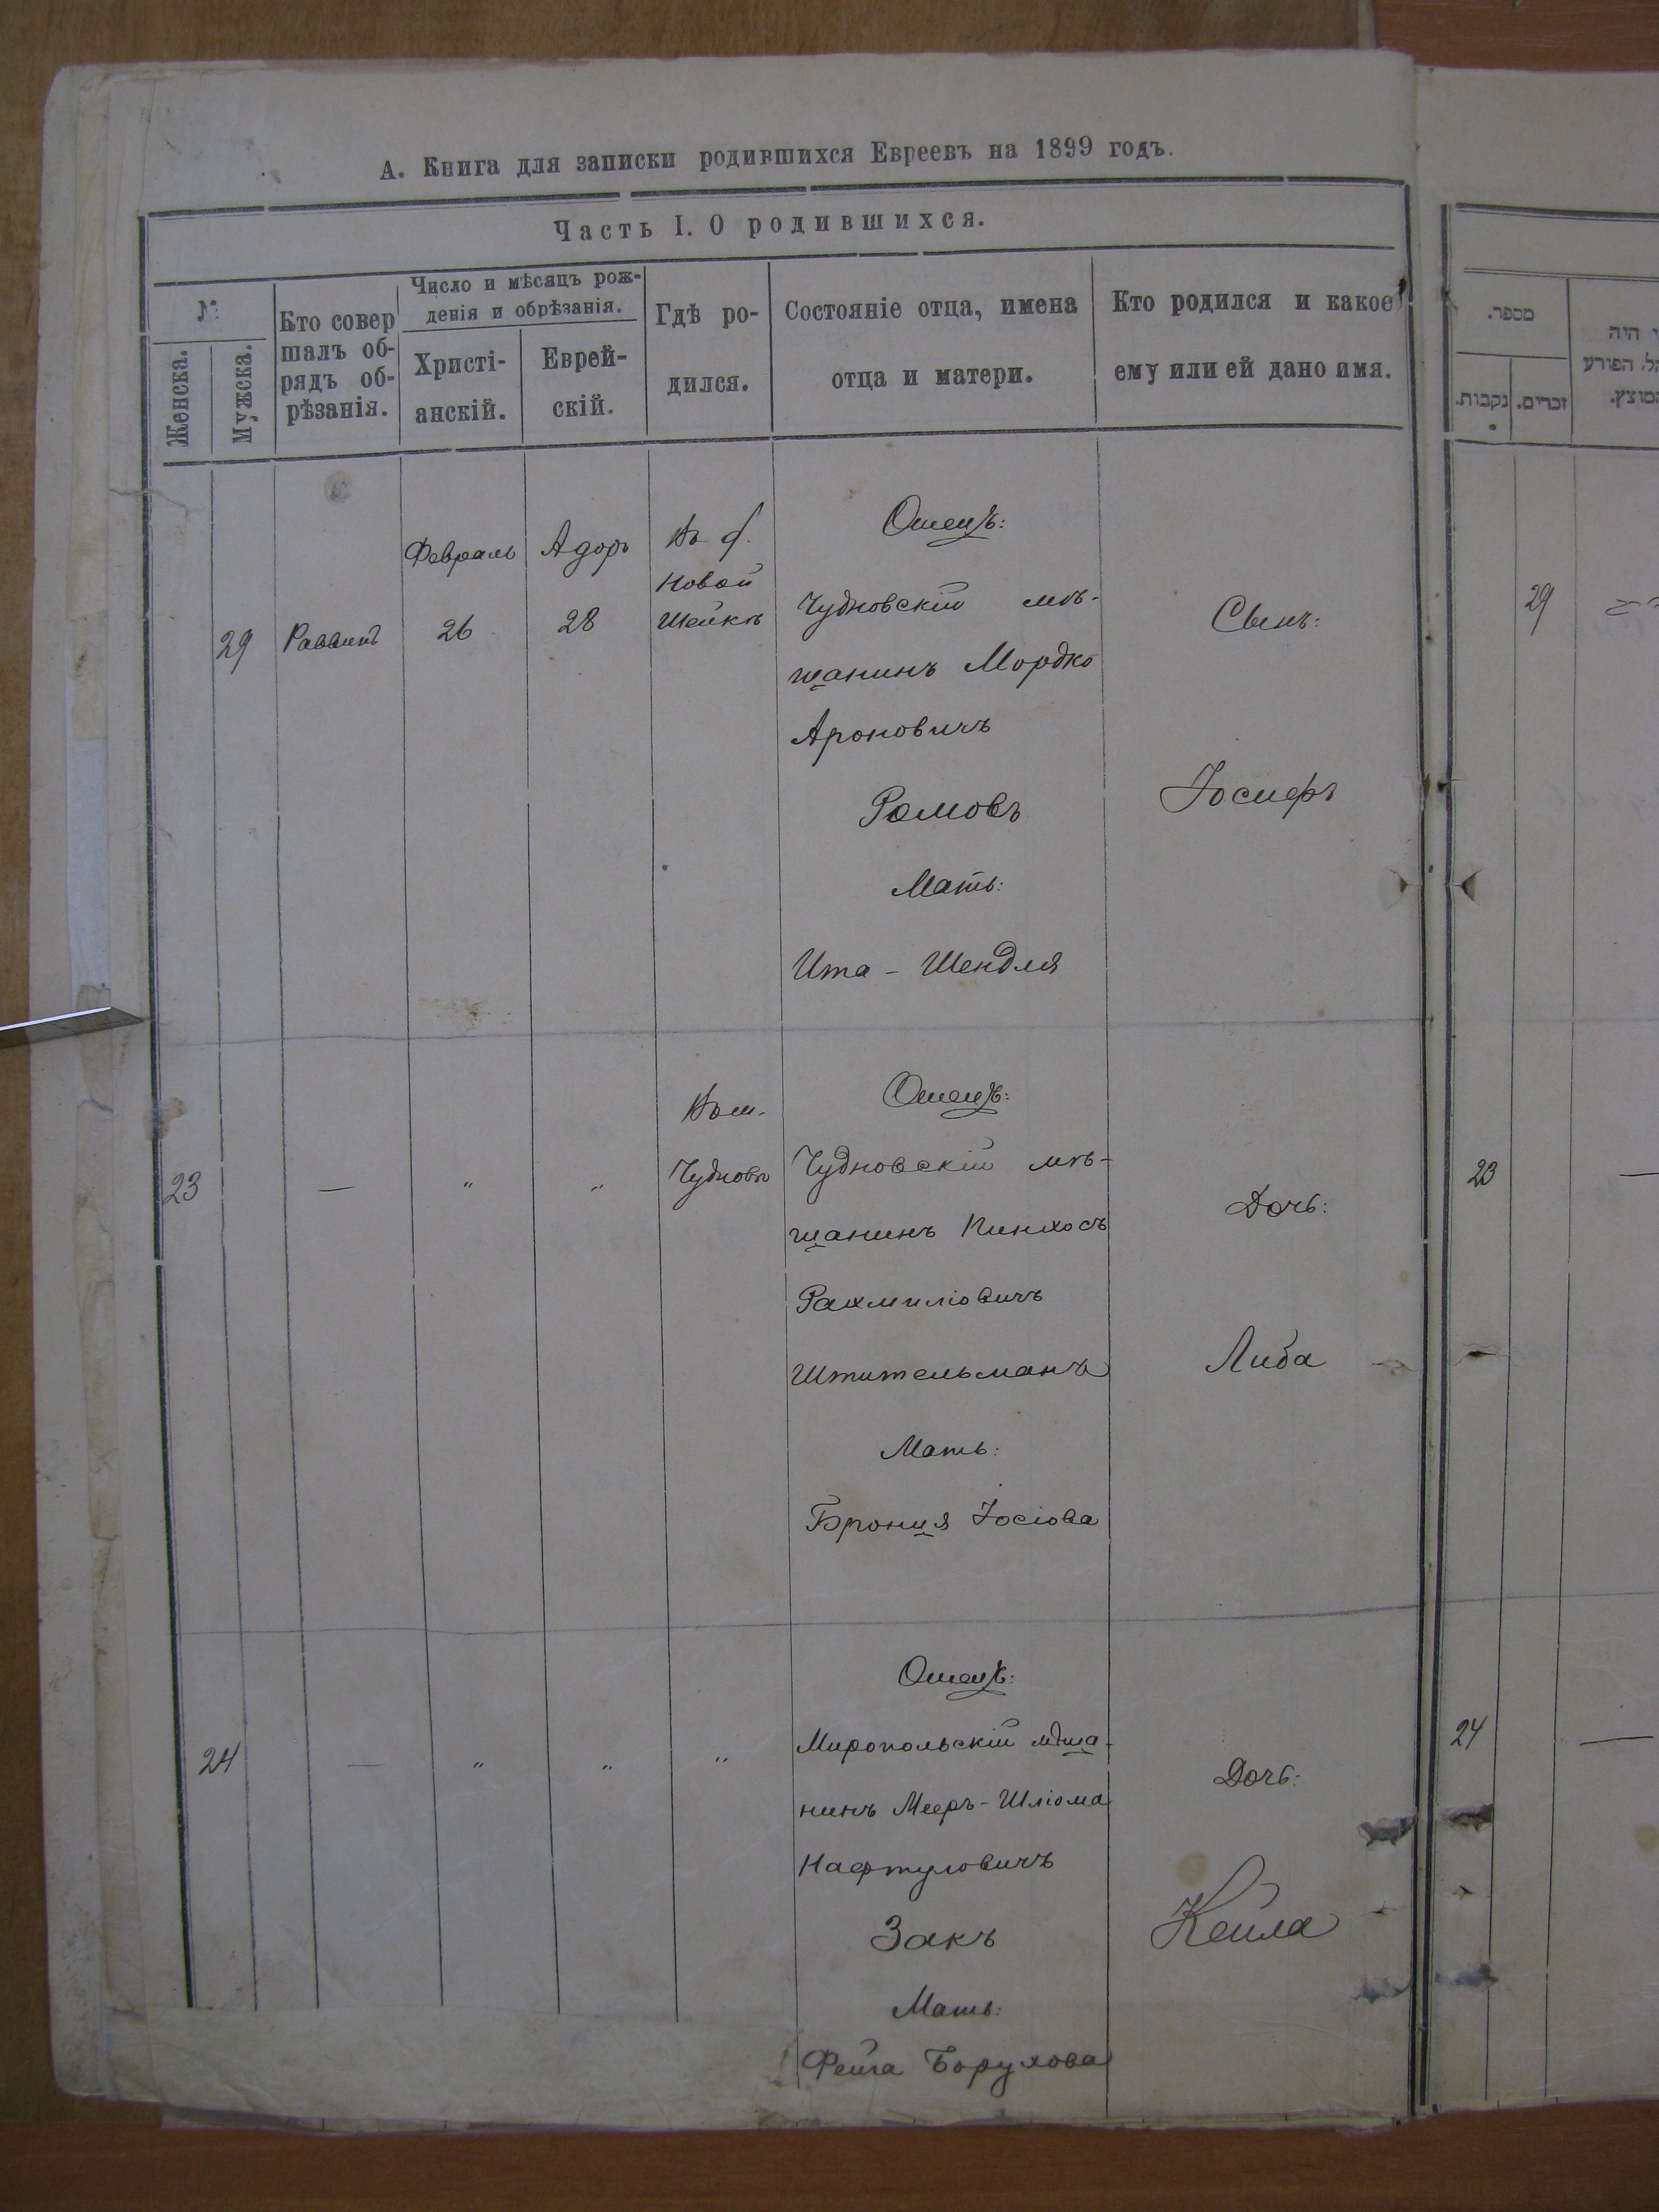 А. Книга для записки родившихся Евреевъ на 1899 годъ.
Часть I. О родившихся.
№
Женска.
Мужска.
Кто совер
шалъ об-
рядъ об-
рѣзанія.
Число и мѣсяцъ рож-
денія и обрѣзанія.
Христі-
анскій.
Еврей-
скій.
Гдѣ ро-
дился.
Состояніе отца, имена
отца и матери.
Кто родился и какое
ему или ей дано имя.
29
Раввинъ
Февраль
26
Адоръ
28
Въ
Новой
Отецъ:
Чудновскій мѣ-
щанинъ Мордко
Ароновичъ
Рomовъ
Мать:
Ита - Шендля
Сынъ:
Іосифъ
23
—
"
"
Въ м.
Чудновѣ
Отецъ:
Чудновскій мѣ-
щанинъ Пинхосъ
Рахмиліовичъ
Штительманъ
Мать:
Броница Іосіова
Дочь:
Либа
24
—
"
"
"
Отецъ:
Миропольскій мѣща-
нинъ Мееръ-Шліома
Нафтуловичъ
Закъ
Мать:
Фейга Борухова
Дочь:
Кейла
מספר.
נקבות.
זכרים.
היה
הפורע
29
23
—
24
—